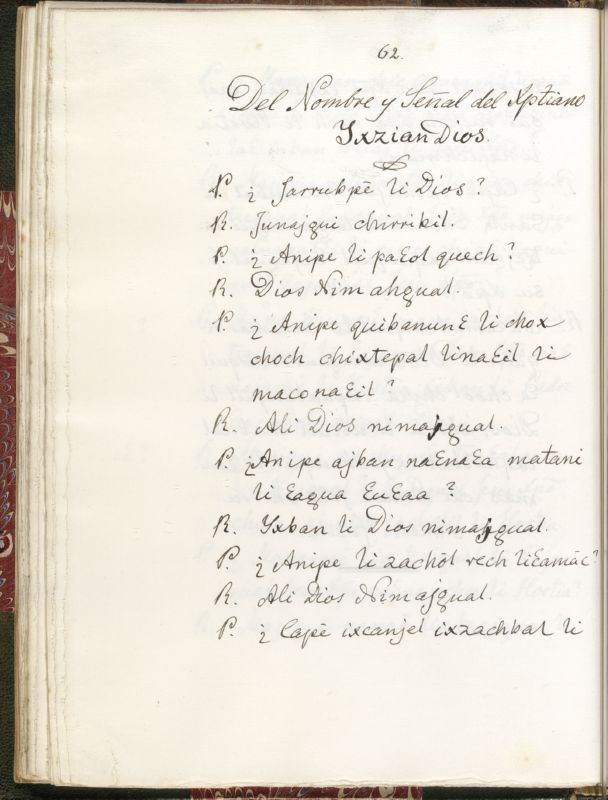 62.
Del Nombre y Señal del Xptiano
Yxzian Dios.
P. ¿ Jarrubpē li Dios?
R. Junajgui chirribil.
P. ¿ Anipe li paƐol quech?
R. Dios Nim ahgual.
P. ¿ Anipe quibanunƐ li chox
choch chixtepal linaƐil li
maco naƐil?
R. Ali Dios nimajgual.
P. ¿Anipe ajban naƐnaƐa matani
li Ɛagua ƐuƐaa ?
R. Yxban li Dios nimajgual.
P. ¿ Anipe li zachōl rech liƐamāc?
R. Ali Dios Nimajgual.
P. ¿ Capē ixcanjel ixzachbal li